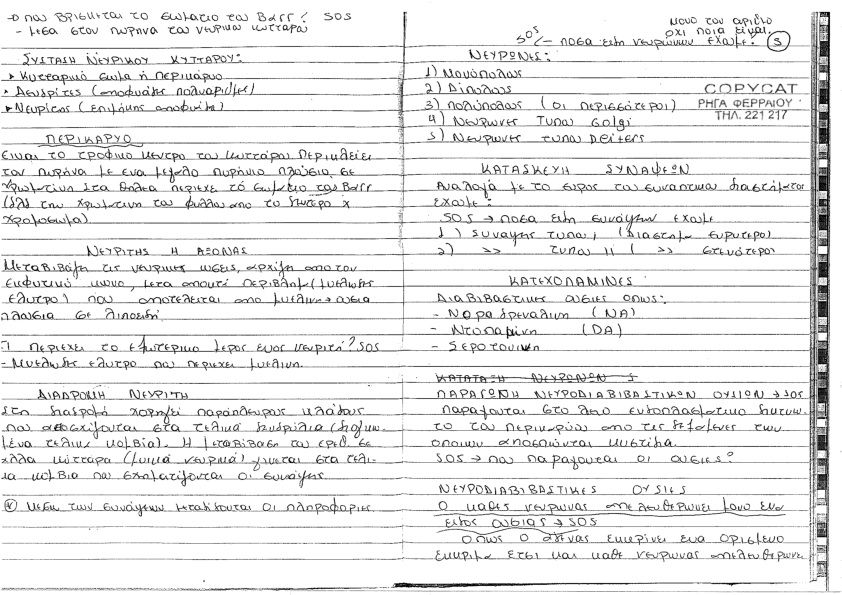 → που βρισκεται το σωματιο του Barr? SOS
- μεσα στον πυρηνα του νευρικου κυτταρου
ΣΥΣΤΑΣΗ ΝΕΥΡΙΚΟΥ ΚΥΤΤΑΡΟΥ:
▸ Κυτταρικο σωμα ή περικαρυο
▸ Δενδριτες (αποφυαδες πολυαριθμες)
▸ Νευριτης (επιμηκης αποφυαδα)
ΠΕΡΙΚΑΡΥΟ
Ειναι το τροφικο κεντρο του κυτταρου περικλειει
τον πυρηνα με ενα μεγαλο πυρηνιο πλουσιο σε
χρωματινη Στα θηλεα περιεχει το σωματιο του Barr
(δηλ την χρωματινη του φυλλου απο το δευτερο χ
χρομοσωμα)
ΝΕΥΡΙΤΗΣ Η ΑΞΟΝΑΣ
Μεταβιβαζη τις νευρικες ωσεις, αρχιζη απο τον
εκφυτικο κωνο, μετα αποκτα περιβλημα (μυελωδες
ελυτρο) που αποτελειται απο μυελινη → ουσια
πλουσια σε λιποειδη
Τι περιεχει το εξωτερικο μερος ενος νευριτη? SOS
- Μυελωδες ελυτρο που περιεχει μυελινη.
ΔΙΑΔΡΟΜΗ ΝΕΥΡΙΤΗ
Στη διαδρομη χορηγει παραπλευρους κλαδους
που αποσχιζονται στα τελικα δενδρυλια (διογκω-
μενα τελικα κομβια). Η μεταβιβαση του ερεθ. σε
αλλα κυτταρα (μυικα νευρικα) γινεται στα τελι-
κα κομβια που σχηματιζονται οι συναψης
Μεσω των συναψεων μεταδιδονται οι πληροφοριες.
μονο τον αριθμο
οχι ποια ειναι
SOS - ποσα ειδη νευρωνων εχουμε; 5
ΝΕΥΡΩΝΕΣ:
1) Μονοπολους
2) Διπολους
3) Πολυπολους (οι περισσοτεροι)
4) Νευρωνες τυπου Golgi
5) Νευρωνες τυπου Deiters
COPYCAT
ΡΗΓΑ ΦΕΡΡΑΙΟΥ
ΤΗΛ. 221 217
ΚΑΤΑΣΚΕΥΗ ΣΥΝΑΨΕΩΝ
Αναλογα με το ευρος του συναπτικου διαστηματος
εχουμε:
SOS → ποσα ειδη συναψεων εχουμε
1) Συναψης τυπου I (διαστημα ευρυτερο)
2) >> τυπου II ( >> στενοτερο)
ΚΑΤΕΧΟΛΑΜΙΝΕΣ
Διαβιβαστικες ουσιες οπως:
- Νοραδρεναλινη (ΝΑ)
- Ντοπαμινη (DA)
- Σεροτονινη
ΚΑΤΑΤΑΞΗ ΝΕΥΡΩΝΩΝ 5
ΠΑΡΑΓΩΓΗ ΝΕΥΡΟΔΙΑΒΙΒΑΣΤΙΚΩΝ ΟΥΣΙΩΝ → SOS
Παραγονται στο λειο ενδοπλασματικο δικτυω-
το του περικαρυου απο τις δεξαμενες των
οποιων αποσπωνται κυστιδια.
SOS → που παραγονται οι ουσιες?
ΝΕΥΡΟΔΙΑΒΙΒΑΣΤΙΚΕΣ ΟΥΣΙΕΣ
Ο καθες νευρωνας απελευθερωνει μονο ενα
ειδος ουσιας → SOS
Οπως ο αδενας εκκρινει ενα ορισμενο
εκκριμα ετσι και καθε νευρωνας απελευθερωνει